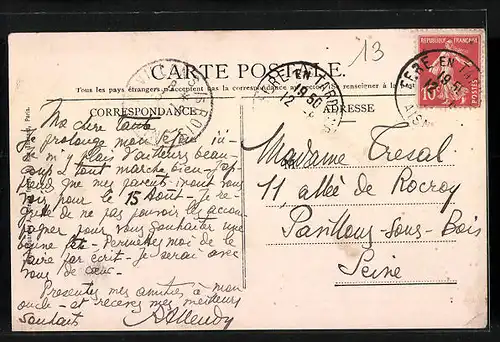 13
CARTE POSTALE
Tous les pays étrangers n'acceptent pas la correspondance au recto (Se renseigner à la
CORRESPONDANCE
ADRESSE
RÉPUBLIQUE FRANÇAISE
10
FERE EN
19 50
12
AISNE
Ma chère tante
Je prolonge mon séjour ici
je m'y plais d'ailleurs beau-
coup & tout marche bien - J'ap-
prends que mes parents iront vous
voir pour le 15 Août - Je re-
grette de ne pas pouvoir les accom-
pagner pour vous souhaiter une
bonne fête - Permettez moi de le
faire par écrit - Je serai avec
vous de cœur -
Presentez mes amitiés à mon
oncle - et recevez mes meilleurs
souhaits
Madame Tresal
11, allée de Rocroy
Pavillons-sous-Bois
Seine